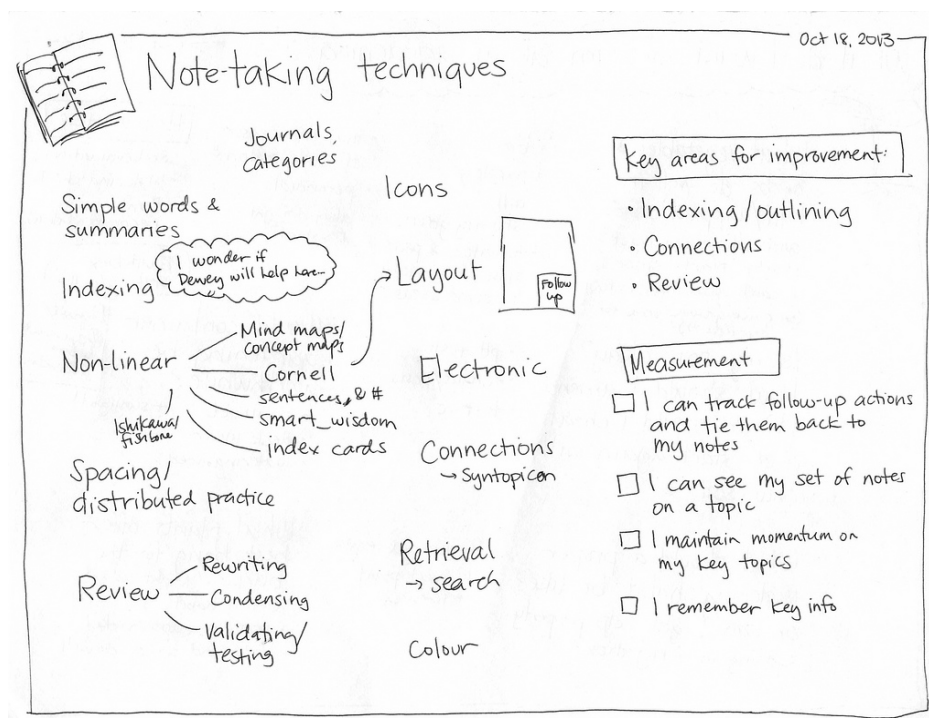 Oct 18, 2013
Note-taking techniques
Journals,
categories
Simple words &
summaries
I wonder if
Dewey will help here...
Indexing
Non-linear
Mind maps/
concept maps
Cornell
sentences, & #
smart_wisdom
index cards
Ishikawa/
fishbone
Spacing/
distributed practice
Review
Rewriting
Condensing
Validating/
testing
Icons
Layout
Follow
up
Electronic
Connections
→ Syntopicon
Retrieval
→ search
Colour
Key areas for improvement:
• Indexing/outlining
• Connections
• Review
Measurement
I can track follow-up actions
and tie them back to
my notes
I can see my set of notes
on a topic
I maintain momentum on
my key topics
I remember key info